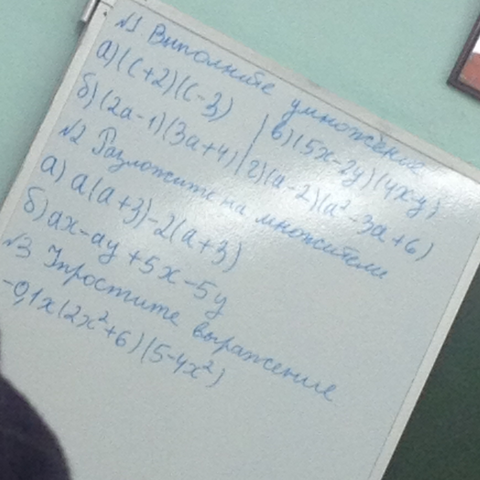 №1 Выполните умножение
а) (c+2)(c-3)
б) (2a-1)(3a+4)
в) (5x-2y)(4x-y)
г) (a-2)(a²-3a+6)
№2 Разложите на множители
а) a(a+3)-2(a+3)
б) ax-ay+5x-5y
№3 Упростите выражение
-0,1x(2x²+6)(5-4x²)